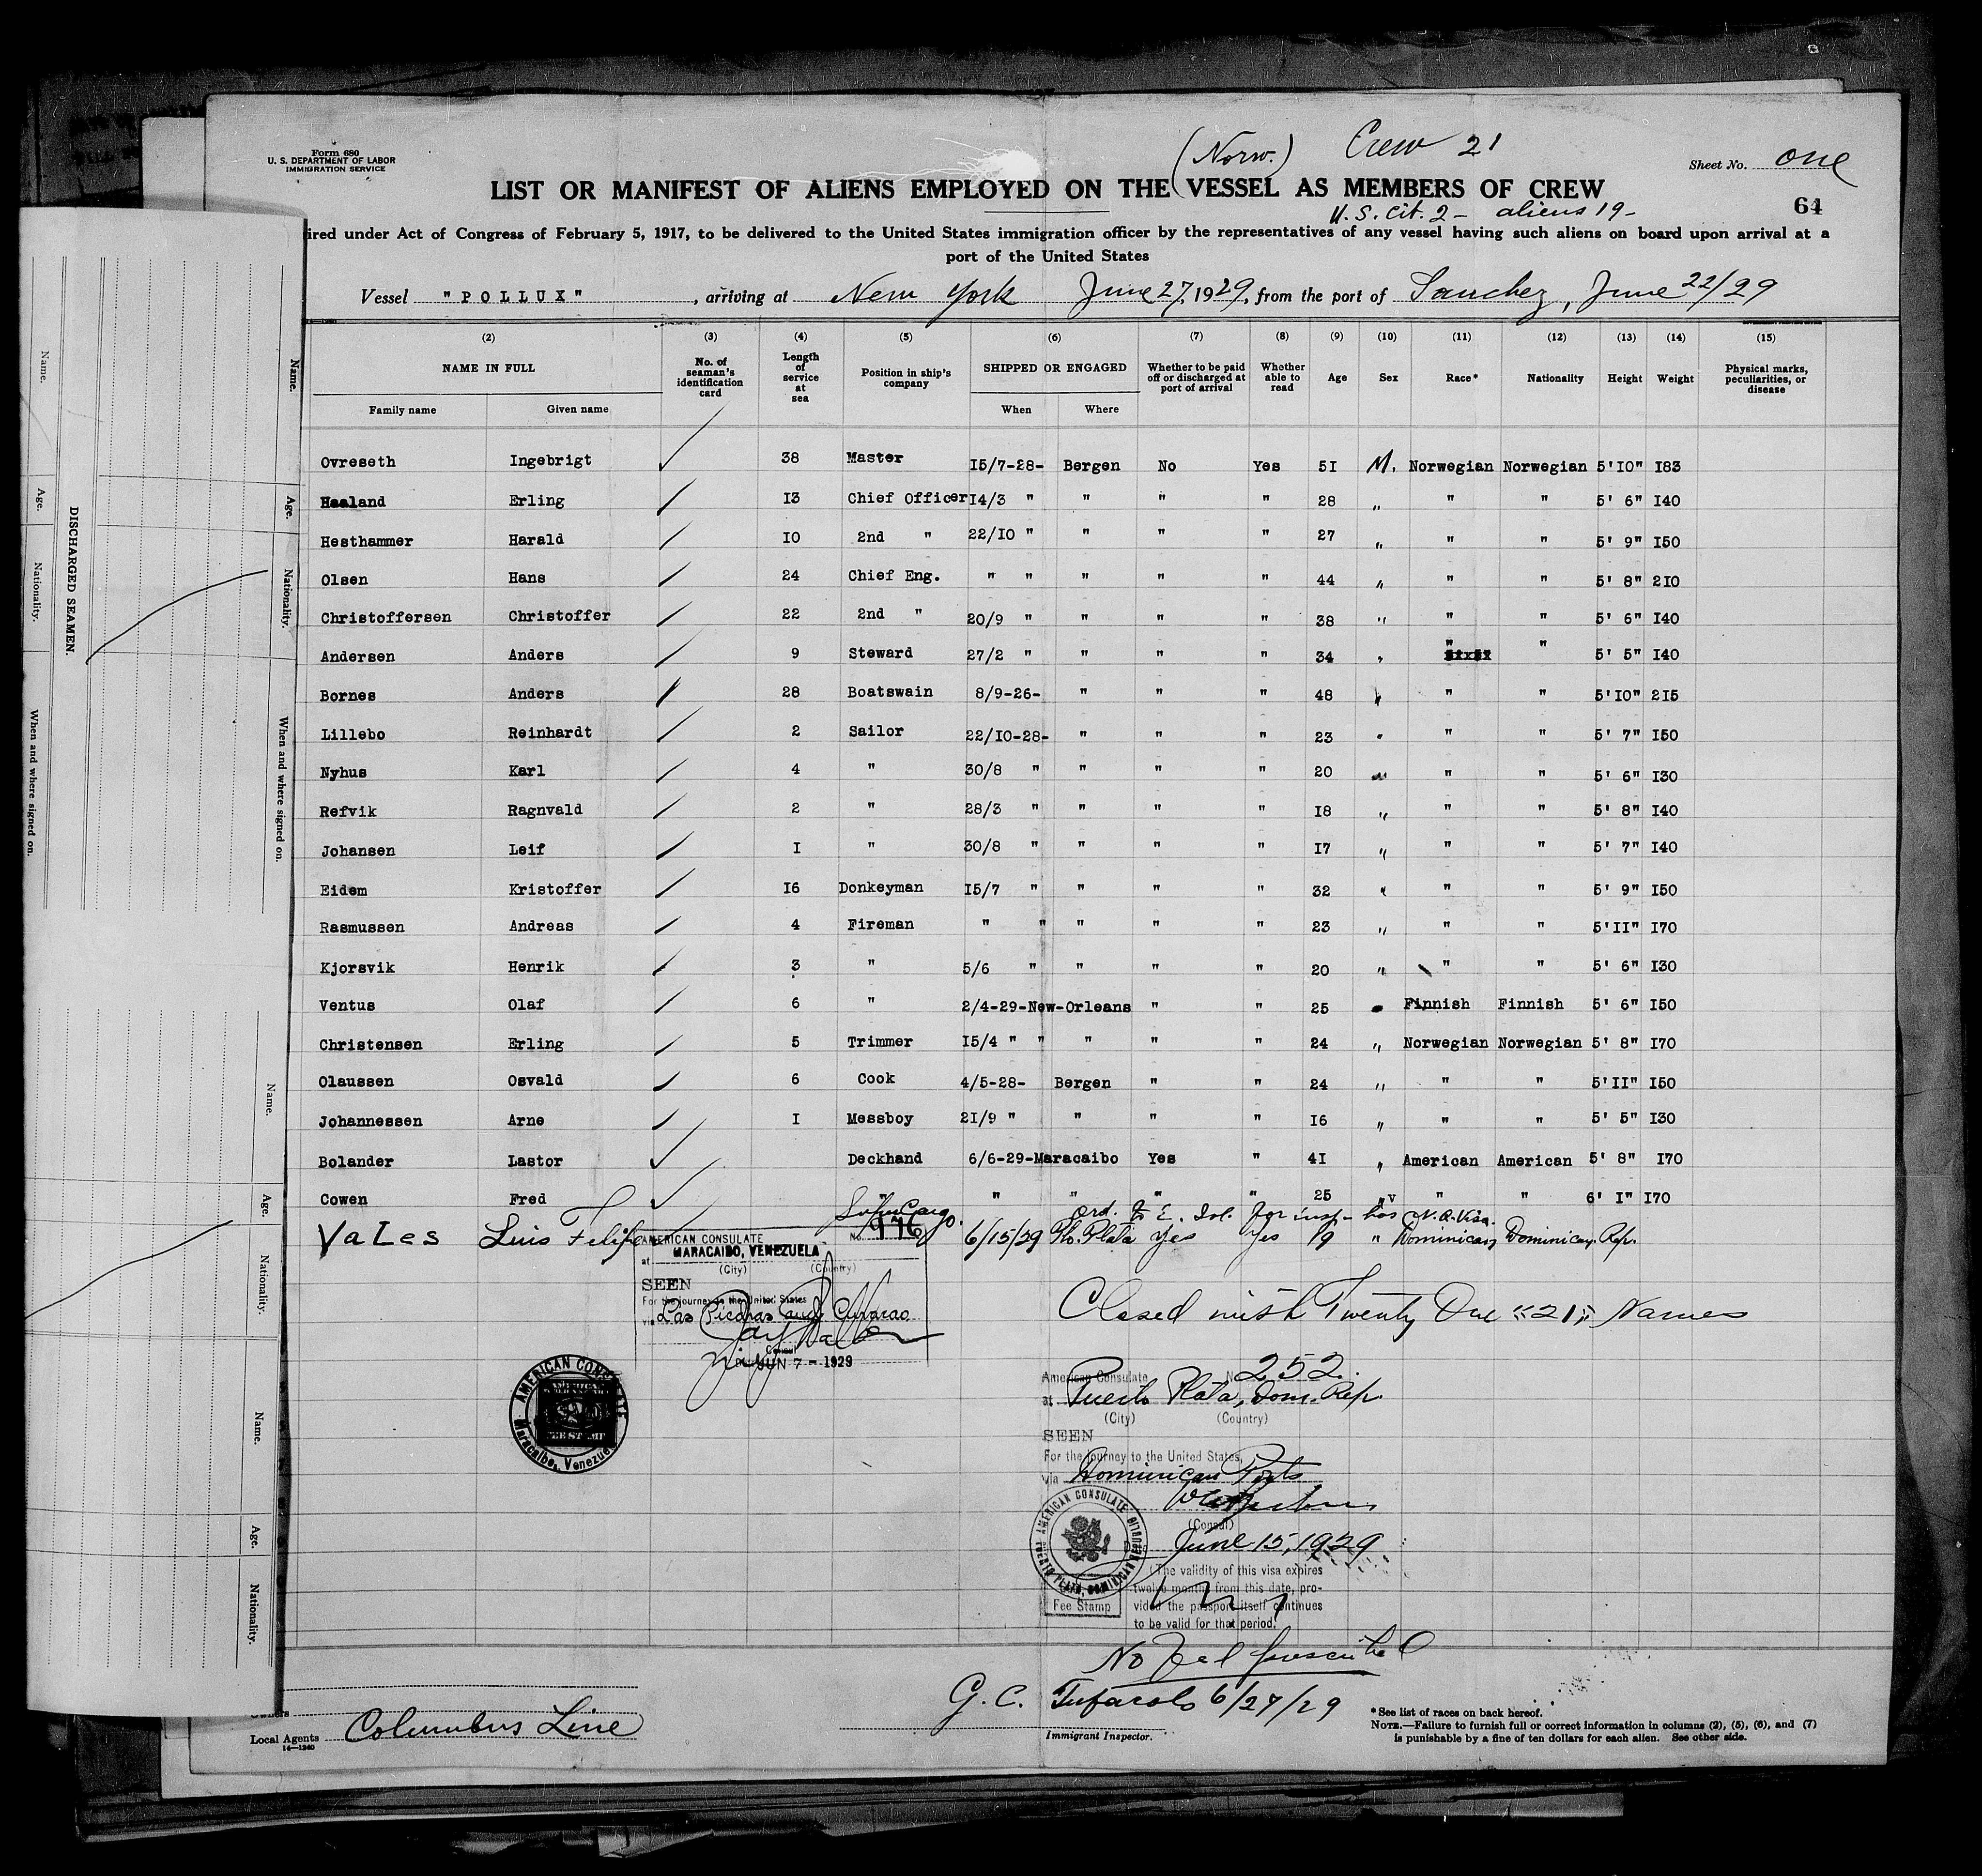 Form 680
U. S. DEPARTMENT OF LABOR
IMMIGRATION SERVICE
(Norw.) Crew 21
Sheet No. One
LIST OR MANIFEST OF ALIENS EMPLOYED ON THE VESSEL AS MEMBERS OF CREW
U.S. Cit. 2 - aliens 19 -
64
ired under Act of Congress of February 5, 1917, to be delivered to the United States immigration officer by the representatives of any vessel having such aliens on board upon arrival at a
port of the United States
Vessel "POLLUX", arriving at New York June 27, 1929, from the port of Sanchez, June 22/29
(2) (3) (4) (5) (6) (7) (8) (9) (10) (11) (12) (13) (14) (15)
NAME IN FULL Family name Given name
No. of seaman's identification card
Length of service at sea
Position in ship's company
SHIPPED OR ENGAGED When Where
Whether to be paid off or discharged at port of arrival
Whether able to read
Age Sex Race* Nationality Height Weight
Physical marks, peculiarities, or disease
Ovreseth Ingebrigt 38 Master 15/7-28- Bergen No Yes 51 M. Norwegian Norwegian 5'10" 183
Haaland Erling 13 Chief Officer 14/3 " " " " 28 " " " 5' 6" 140
Hesthammer Harald 10 2nd " 22/10 " " " " 27 " " " 5' 9" 150
Olsen Hans 24 Chief Eng. " " " " " 44 " " " 5' 8" 210
Christoffersen Christoffer 22 2nd " 20/9 " " " " 38 " " " 5' 6" 140
Andersen Anders 9 Steward 27/2 " " " " 34 " " " 5' 5" 140
Bornes Anders 28 Boatswain 8/9-26- " " " 48 " " " 5'10" 215
Lillebo Reinhardt 2 Sailor 22/10-28- " " " 23 " " " 5' 7" 150
Nyhus Karl 4 " 30/8 " " " " 20 " " " 5' 6" 130
Refvik Ragnvald 2 " 28/3 " " " " 18 " " " 5' 8" 140
Johansen Leif 1 " 30/8 " " " " 17 " " " 5' 7" 140
Eidem Kristoffer 16 Donkeyman 15/7 " " " " 32 " " " 5' 9" 150
Rasmussen Andreas 4 Fireman " " " " " 23 " " " 5'11" 170
Kjorsvik Henrik 3 " 5/6 " " " " 20 " " " 5' 6" 130
Ventus Olaf 6 " 2/4-29-New-Orleans " " 25 " Finnish Finnish 5' 6" 150
Christensen Erling 5 Trimmer 15/4 " " " " " 24 " Norwegian Norwegian 5' 8" 170
Olaussen Osvald 6 Cook 4/5-28- Bergen " " 24 " " " 5'11" 150
Johannessen Arne 1 Messboy 21/9 " " " " 16 " " " 5' 5" 130
Bolander Lastor Deckhand 6/6-29-Maracaibo Yes " 41 " American American 5' 8" 170
Cowen Fred " " " " " 25 " " " 6' 1" 170
Ord. to E. Isl. for insp - has N.Q. Visa.
Vales Luis Felipe 6/15/29 Pto. Plata Yes Yes 19 " Dominican Dominican Rep.
AMERICAN CONSULATE No. 976
at MARACAIBO, VENEZUELA
(City) (Country)
SEEN
For the journey to the United States
via Las Piedras and Curacao
Consul
JUN 7 - 1929
AMERICAN CONSULATE
Maracaibo, Venezuela
FEE STAMP
Closed with Twenty One "21" Names
American Consulate No 252.
at Puerto Plata, Dom. Rep.
(City) (Country)
SEEN
For the journey to the United States,
via Dominican Ports
(Consul)
June 15, 1929
AMERICAN CONSULATE
PUERTO PLATA, DOMINICAN REPUBLIC
Fee Stamp
(The validity of this visa expires
twelve months from this date, pro-
vided the passport itself continues
to be valid for that period.
No
G. C. 6/27/29
Immigrant Inspector.
Owners
Local Agents Columbus Line
14-1240
*See list of races on back hereof.
NOTE.—Failure to furnish full or correct information in columns (2), (5), (6), and (7)
is punishable by a fine of ten dollars for each alien. See other side.
DISCHARGED SEAMEN.
Name. Age. Nationality. When and where signed on.
Name. Age. Nationality. When and where signed on.
Name. Age. Nationality.
Name. Age. Nationality.